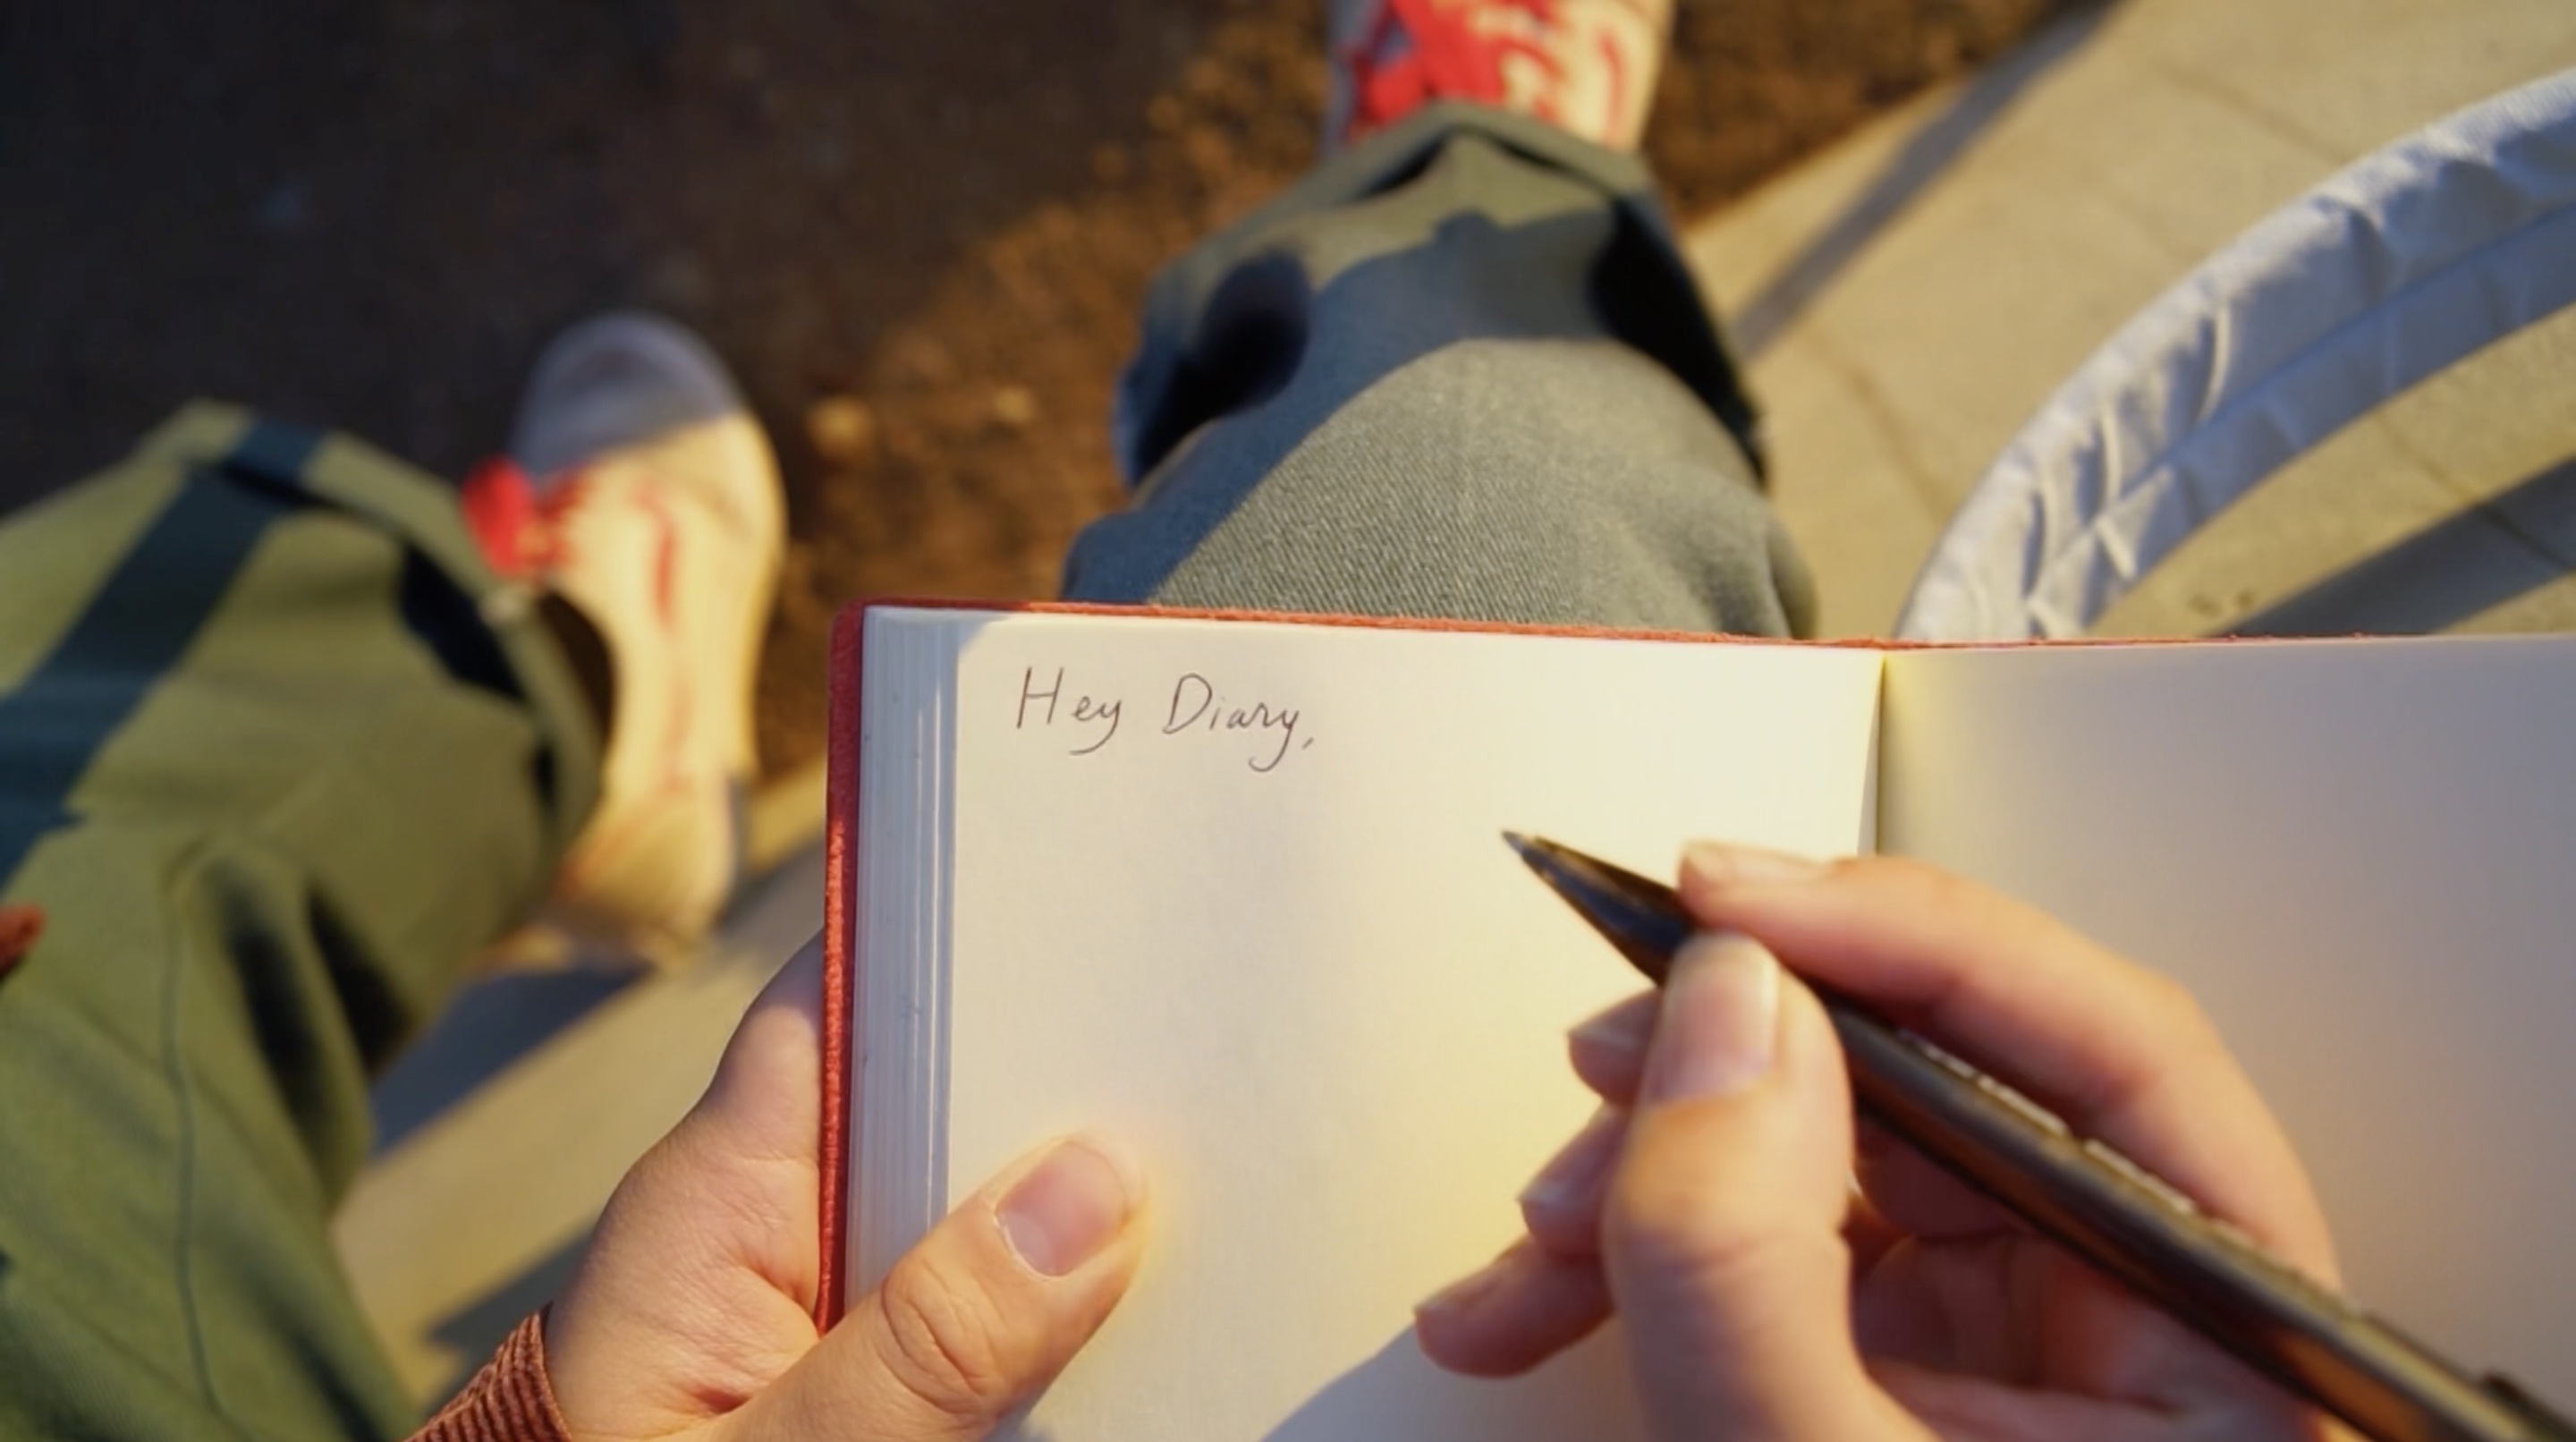 Hey Diary,